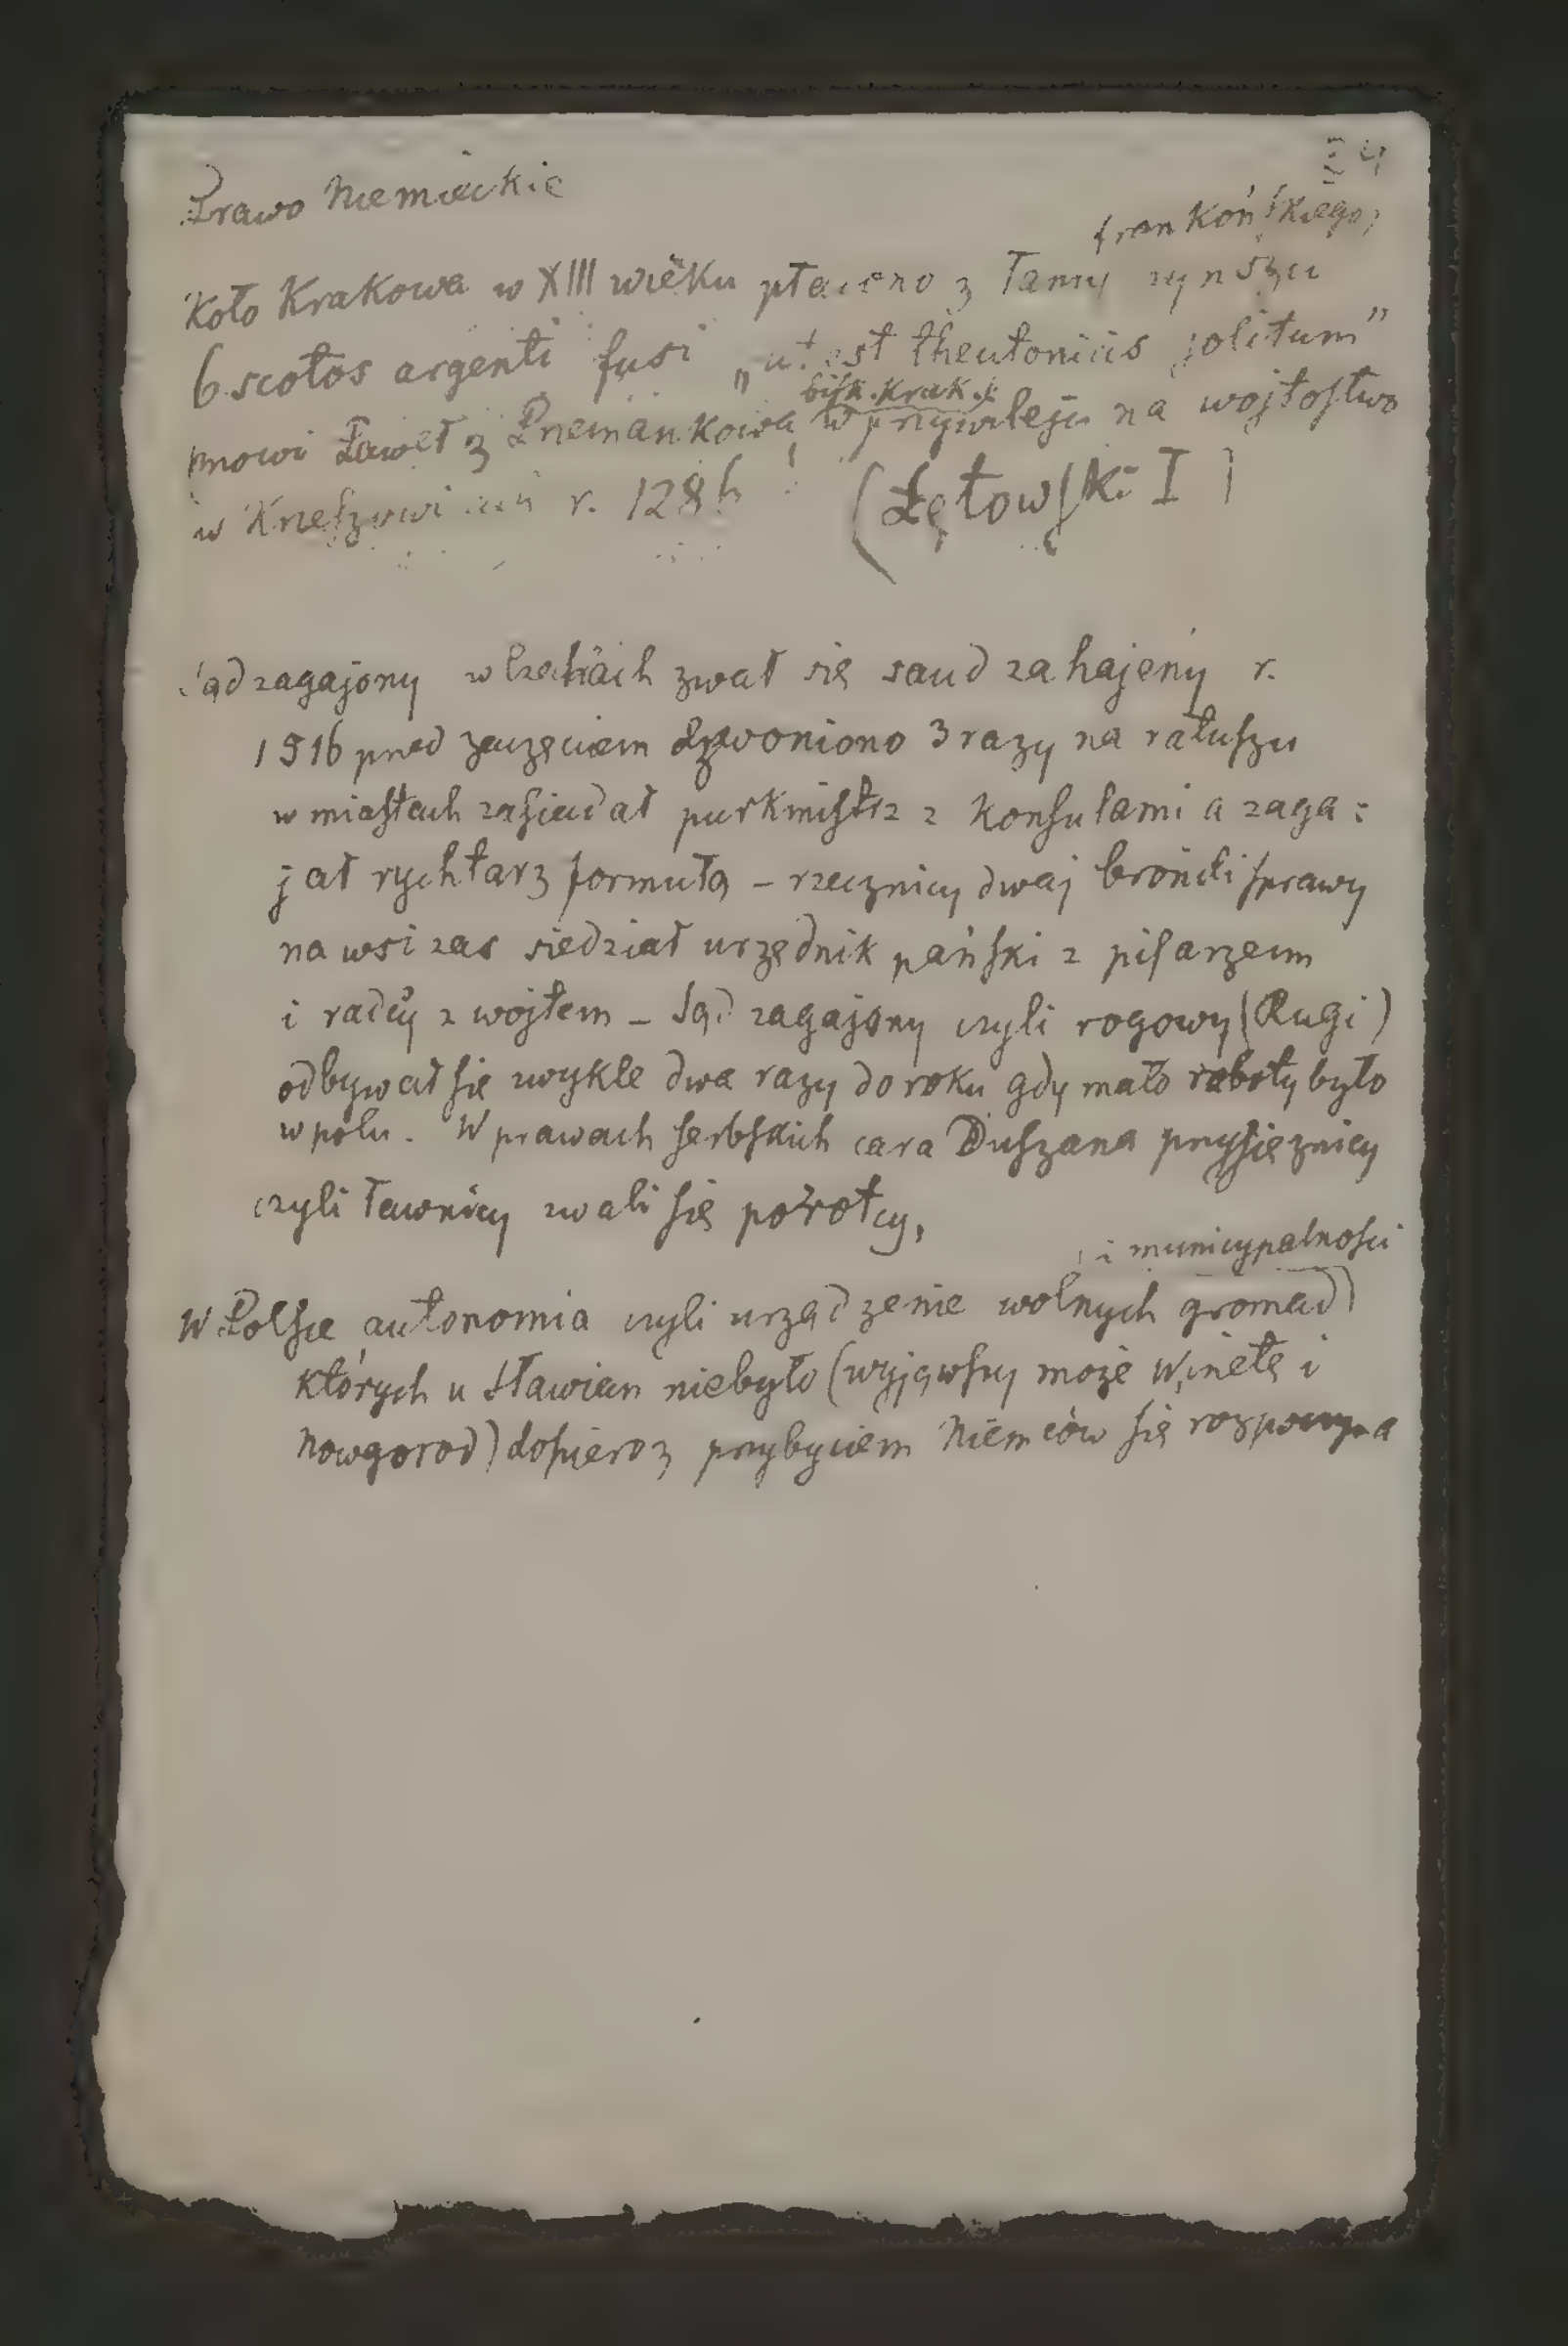 Prawo Niemieckie
frankońskiego
Koło Krakowa w XIII wieku płacono z łanu czynszu
6 scotos argenti fusi „ut est theutonicis solitum”
bisk. Krak.
mowi Paweł z Przemankowa w przywileju na wojtostwo
w r. 1286 (Łętowski I)
Sąd zagajony w Czechach zwał się saud zahajeny r.
1516 przed zaczęciem dzwoniono 3 razy na ratuszu
w miastach zasiadał purkmistrz z konsulami a zaga=
jał rychtarz formułą – rzecznicy dwaj bronili sprawy
na wsi zas siedział urzędnik pański z pisarzem
i radcy z wojtem – Sąd zagajony czyli rogowy (Rugi)
odbywał się zwykle dwa razy do roku gdy mało roboty było
w polu. W prawach serbskich cara Duszana przysięznicy
czyli ławnicy zwali się porotcy,
i municypalności
W Polsce autonomia czyli urządzenie wolnych gromad
których u Sławian niebyło (wyjąwszy może Winetę i
Nowgorod) dopiero z przybyciem Niemców się rozpoczyna